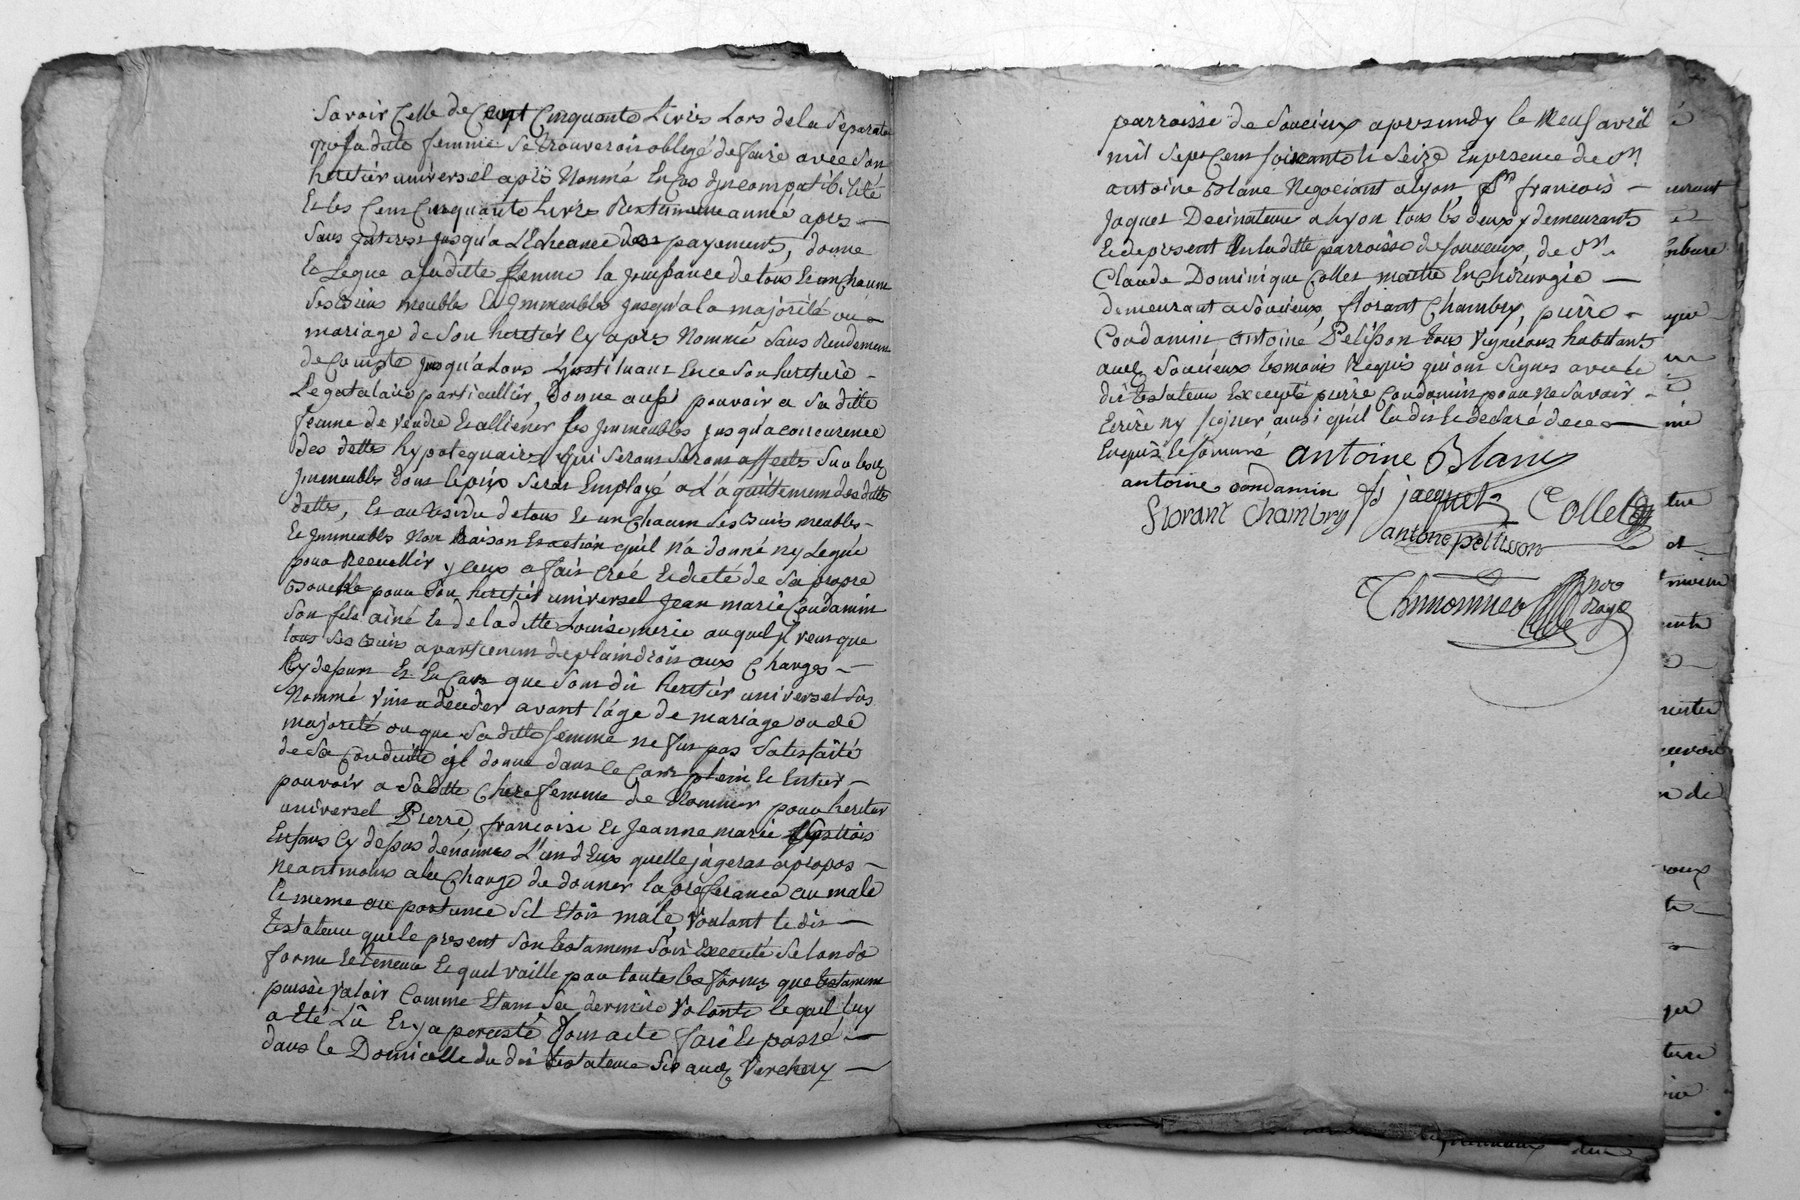 Savoir Celle de Cent Cinquante Livres Lors de la Separation
que ladite femme se trouveroit obligé de faire avec Son
heritier universel apré Nommé En Cas d'incompatibilité
Et les Cent Cinquante Livres Restant une année apres —
Sans Interest jusqu'a L'Echeance des payements, donne
Et Legue a Saditte femme la Jouissance de tous Et un Chacuns
Ses Biens meubles Et Immeubles jusqu'a la majorité ou
mariage de Son heritier Cy apres Nommé Sans Rendement
de Compte jusqu'alors L'instituant En ce Son heritiere
Legataire particulliere, Donne aussi pouvoir a Sa ditte
femme de Vendre Et alliener Ses Immeubles jusqu'a concurence
des dettes hypotequaires qui Seront affectés Sur lesd
Immeubles dont le prix Sera Employé a L'aquittement des dittes
dettes, Et au Residu de tous Et un Chacun Ses Biens meubles
Et Immeubles Nom Raison Et action qu'il n'a donné ny Legué
pour Recueillir yceux a fait Créé Et dicté de Sa propre
Bouche pour Son heritier universel Jean marie Condamin
Son fils ainé Et de laditte Louise merie auquel il veut que
tous Ses Biens apartienent de plain droit aux Charges —
Cy dessus Et En Cas que Son dit heritier universel Sus
Nommé Vint a deceder avant l'age de mariage ou de
majorité ou que Saditte femme ne fut pas Satisfaitte
de Sa Conduitte il donne dans ce Cas plein Et Entier —
pouvoir a Saditte Chere femme de Nommer pour heritier
universel Pierre, francoise Et Jeanne marie Ses trois
Enfans Cy dessus denommes L'un d'Eux quelle jugeras apropos —
neantmoins a la Charge de donner la preference au male
le meme au postume Sil Etoit male, Voulant ledit —
testateur que le present Son testament Soit Executé Selon Sa
forme Et teneur Et quil vaille par toutes les formes que testament
puisse Valoir Comme Etant Sa derniere Volonté lequel luy
a Eté Lû Et y a percisté Dont acte fait Et passé —
dans le Domicille du dit testateur Sis au Verchery —
parroisse de Soucieux apres midy le Neuf avril
mil Sept Cent Soixante Et Seize En presence de Sr
antoine Blanc Negociant a lyon, Sr francois —
Jaquet Decinateur a Lyon tous les deux y demeurants
Et de present En laditte parroisse de Soucieux, de Sr
Claude Dominique Collet maitre En Chirurgie —
demeurant a Soucieux, florant Chambry, pierre
Condamin Antoine Pelisson tous Vignerons habitants
aud Soucieux temoins Requis qui ont Signes avec le
dit testateur Excepté pierre Condamin pour ne Savoir
Ecrire ny Signer ainsi qu'il la dit Et declaré de ce —
Enquis Et Sommé antoine Blanc
antoine condamin fs jacquet Collet
florant Chambry
antoine pellisson
Thimonnier
no.re royal